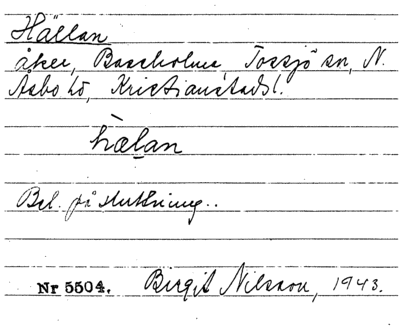 Hällan
åker, Bassholma Tossjö sn, N.
Åsbo hd, Kristianstads l.
hælan
Bel. på sluttning..
Nr 5504. Birgit Nilsson, 1943.